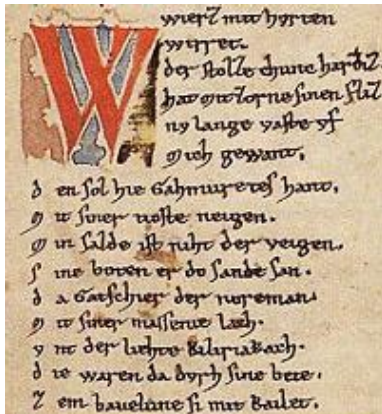 Wwierz mit hyrten
wirret.
der stolze chune hardiz
hat mit zorne sinen fliz
ny lange vaste vf
mich gewant.
d en sol hie Gahmuretes hant.
m it siner tioste neigen.
m in salde ist niht der veigen.
s ine boten er do sande san.
d a Gatschier der noreman.
m it siner massenie lach.
v nt der lichte kiliriakach.
d ie waren da dvrh sine bete.
z em pavelune si mit kailet.